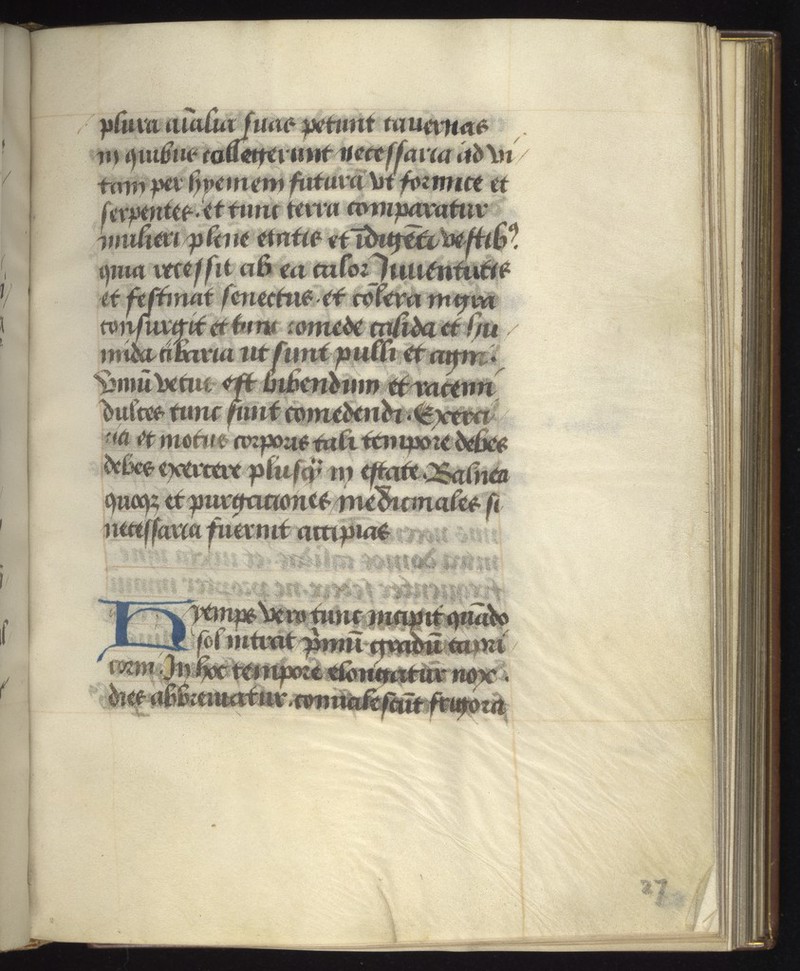 plura aīalia suas petunt tauernas
in quibus collegerunt necessaria ad vi
tam per hyemem futurā vt formice et
serpentes. et tunc terra comparatur
mulieri plene etatis et īdigēti vestibꝰ.
quia recessit ab ea calor Iuuentutis
et festinat senectus. et cōlera nigra
consurgit et tunc comede calida et hu
mida cibaria ut sunt pulli et agni.
Vinū vetus est bibendum et racemi
dulces tunc sunt comedendi. Exerci
cia et motus corporis tali tempore debes
debes exercere plusꝙ̄ in estate. Balnea
quoqꝫ et purgationes medicinales si
necessaria fuerint accipias
Hyemps vero tunc incipit quādo
sol intrat p̄mū gradū capri
corni. In hoc tempore elongatur nox.
dies abbreuiatur. conualescūt frigora
27